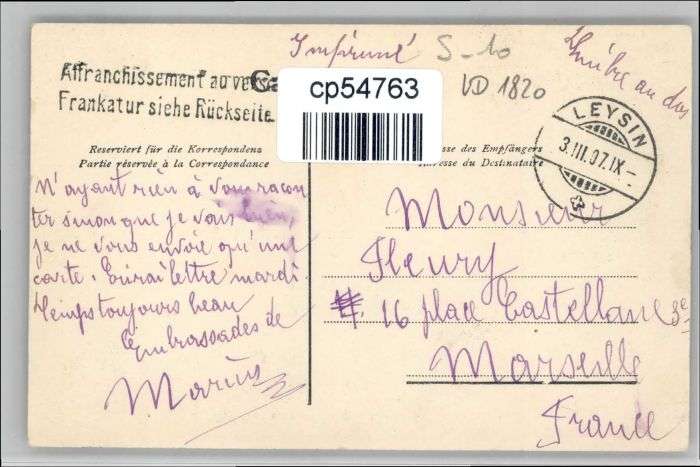 Imprimé
S-10
VD 1820
Timbre au dos
Affranchissement au ve
Frankatur siehe Rückseite.
cp54763
LEYSIN
3.III.07.IX-
Reserviert für die Korrespondenz
Partie réservée à la Correspondance
sse des Empfängers
Adresse du Destinataire
N'ayant rien à vous racon
ter sinon que je vais bien,
je ne vous envoie qu'une
carte. Écrirai lettre mardi.
Temps toujours beau
Embrassades de
Marius
Monsieur
Fleury
16 place Castellane 3e
Marseille
France